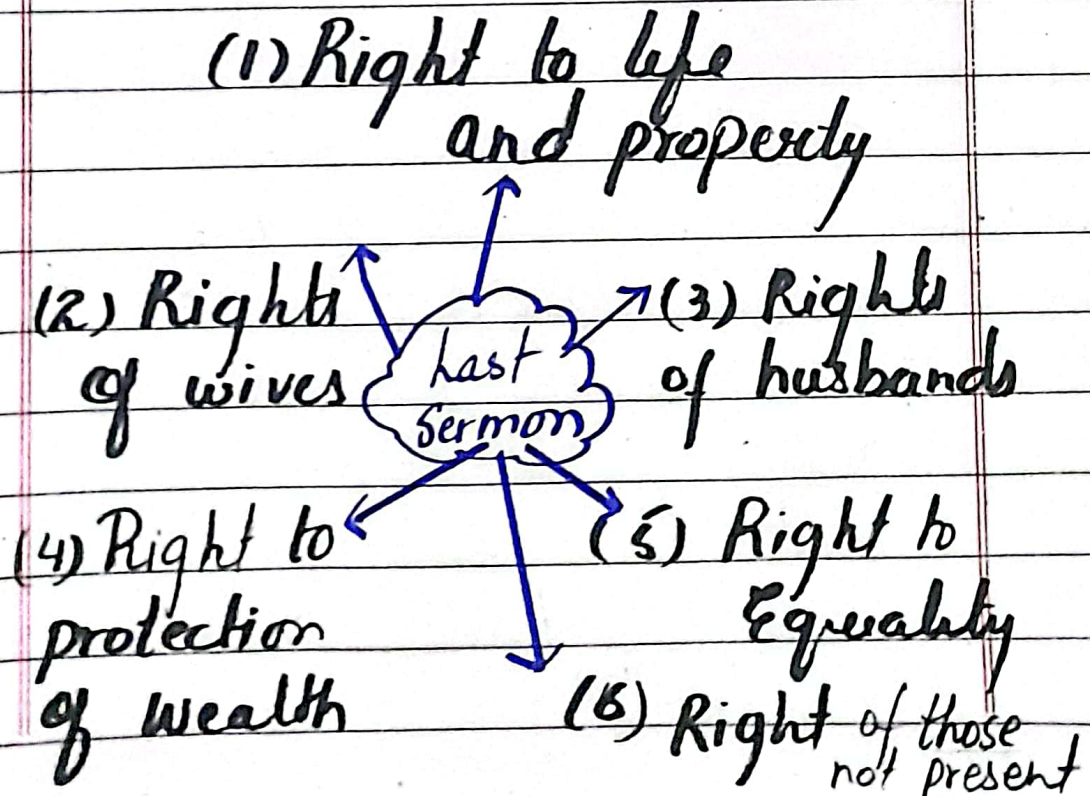 (1) Right to life
and property
(2) Rights
of wives
Last
Sermon
(3) Rights
of husbands
(4) Right to
protection
of wealth
(5) Right to
Equality
(6) Right of those
not present